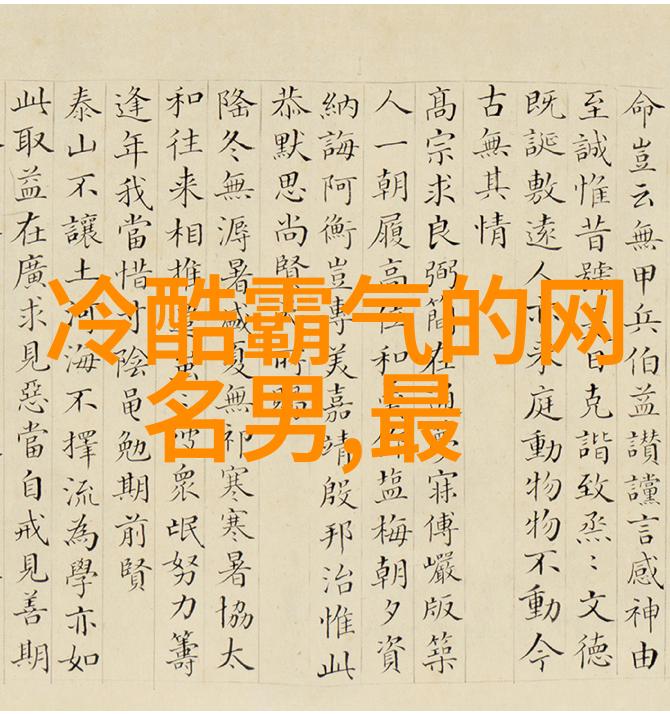 冷酷霸气的网
名男,最
命豈云無甲兵伯益讃讜言感神由
至誠惟昔號克諧致烝〻文德
既誕敷遠人亦来庭動物物不動今
古無其情
高宗求良弼簡在寐傅巖版築
人一朝履高位和塩梅朝夕資
納誨阿衡豈專美嘉靖殷邦治惟此
恭默思尚賢
隆冬無溽暑盛夏無祁寒寒暑協太
和往来相推彼衆氓努力籌
逢年我當惜寸陰黽勉期前賢
泰山不讓土河海不擇流為學亦如
此取益在廣求見惡當自戒見善期